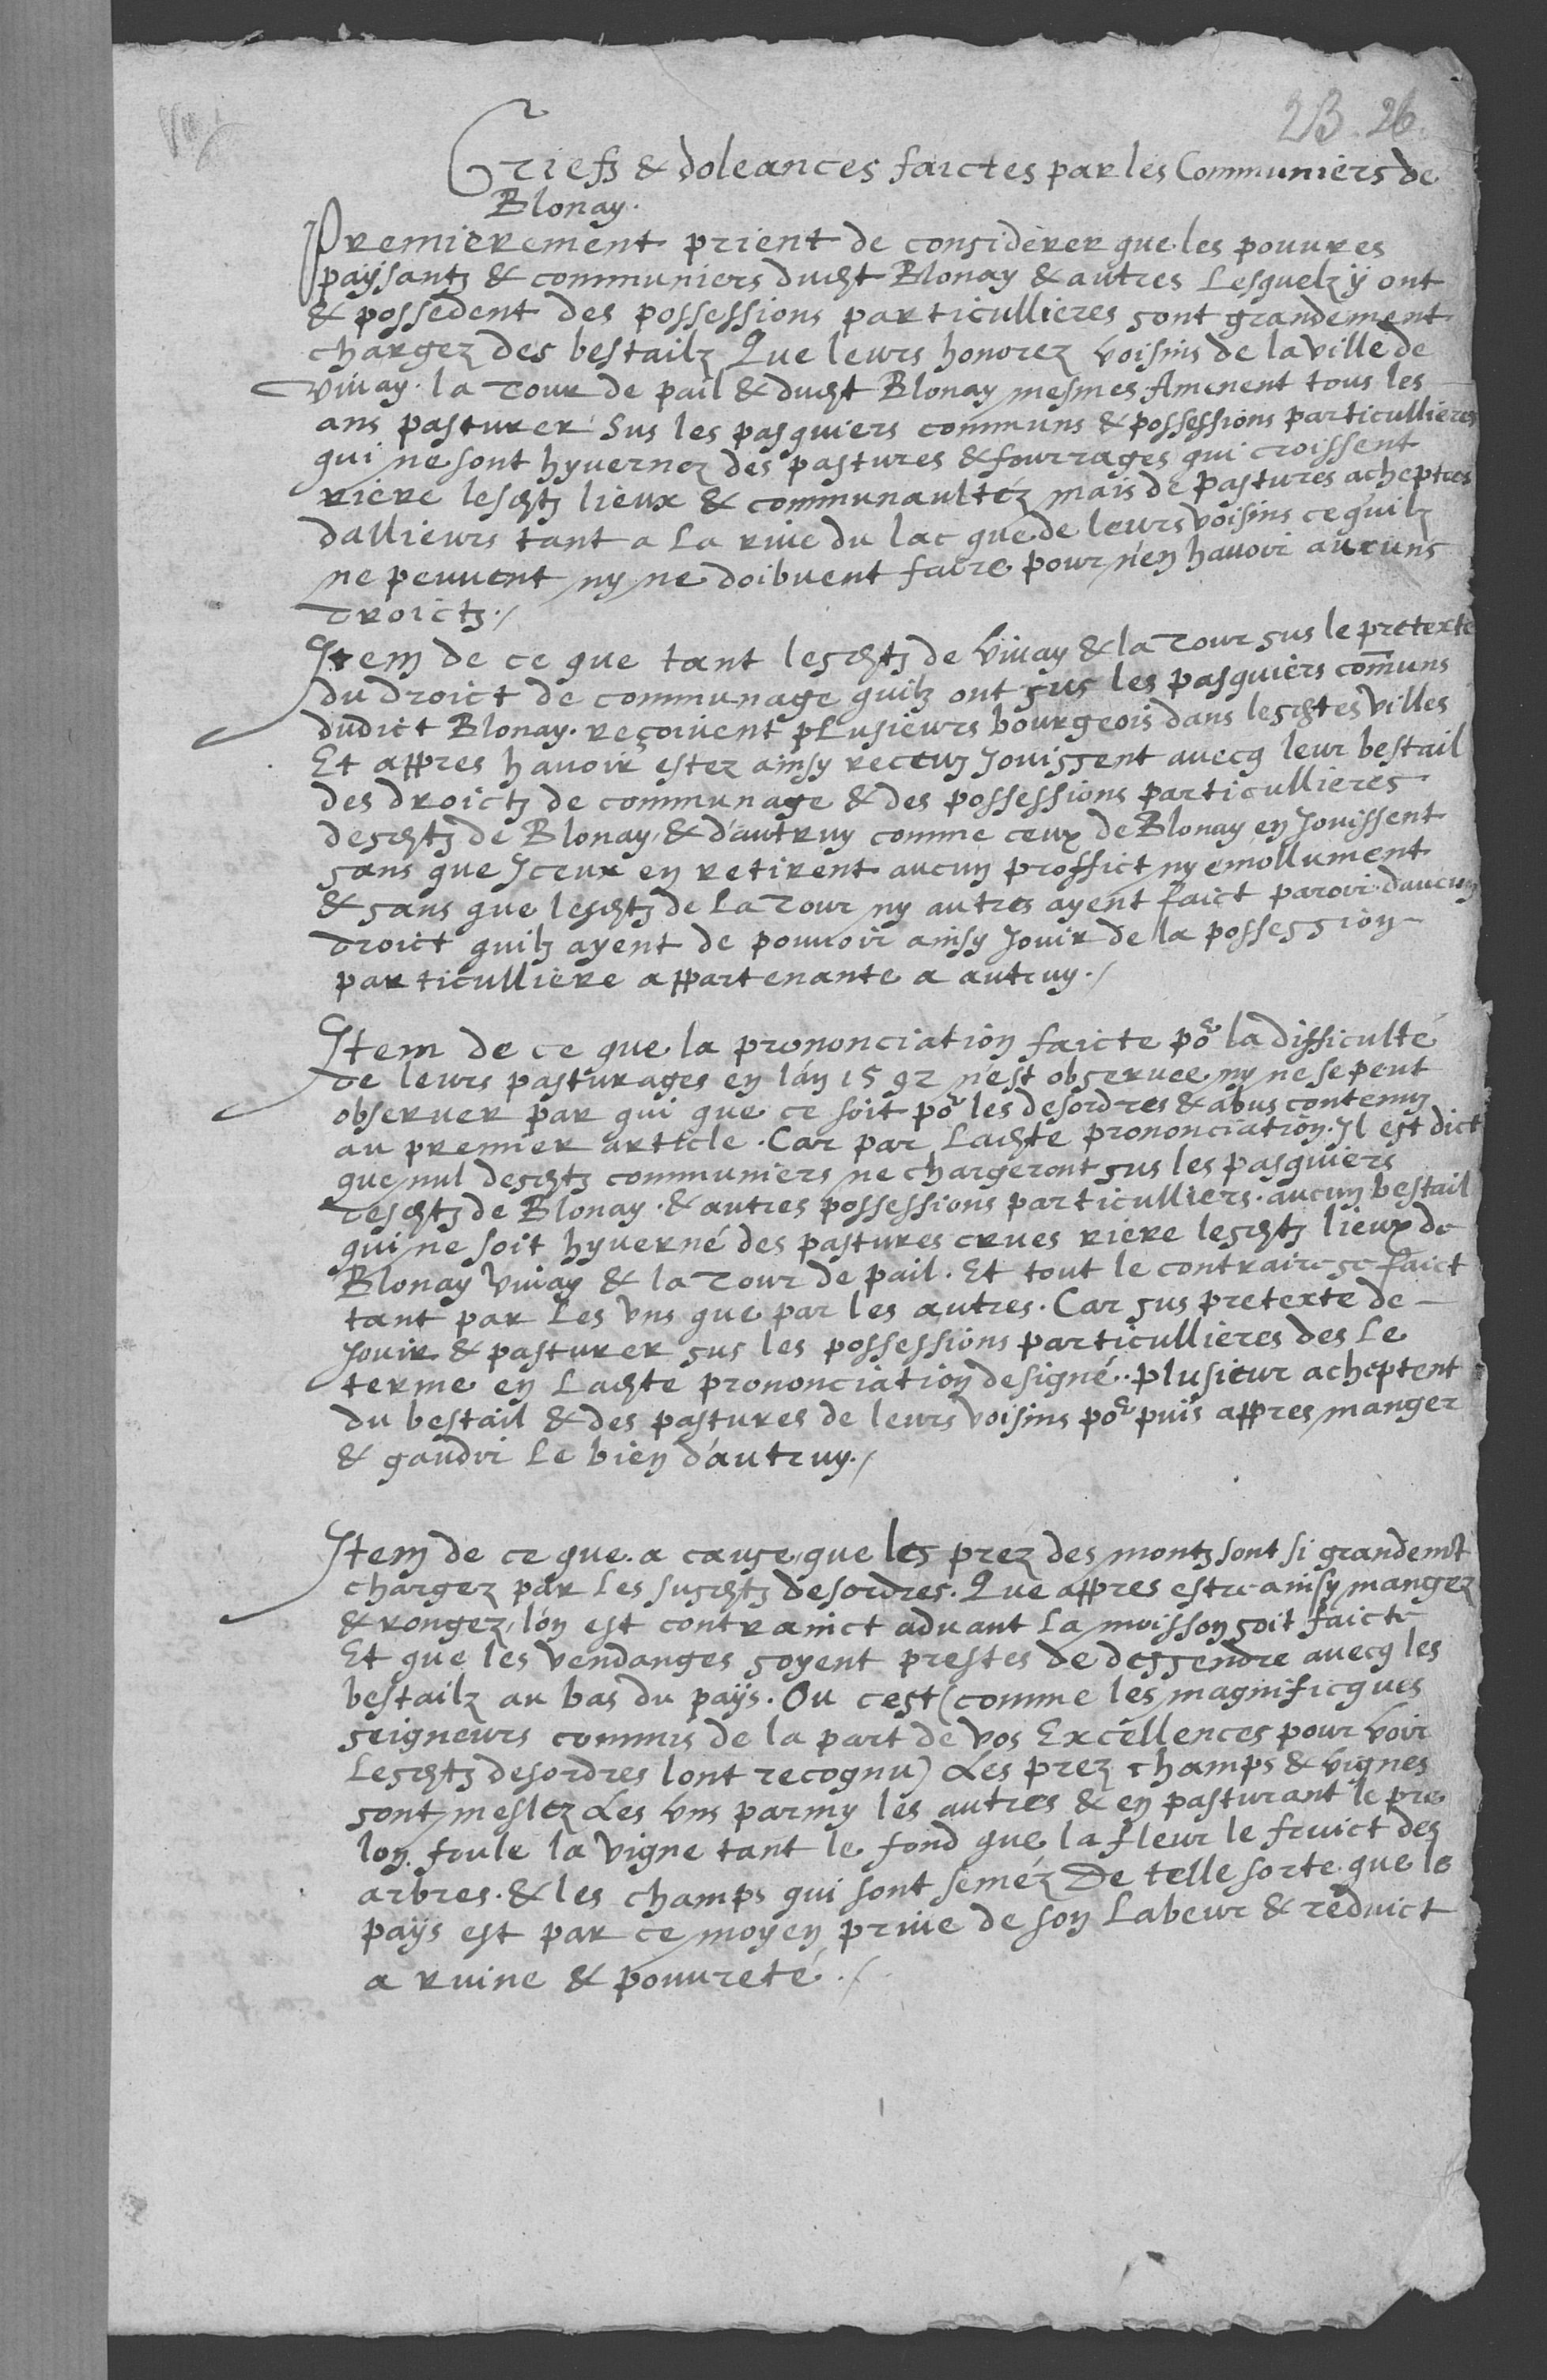 23. 26.
Griefz & doleances faictes par les Communiers de
Blonay.
Premierement prient de considerer que les pouures
paÿsantz & communiers dudit Blonay & autres Lesquelz ÿ ont
& possedent des possessions particullieres sont grandement
chargez des bestailz Que leurs honorez voisins de la ville de
viuay. la Tour de pail & dudit Blonay mesmes Amenent tous les
ans pasturer Sus les pasquiers communs & possessions particullieres
qui ne sont hyuernez des pastures & fourrages qui croissent
riere lesditz lieux & communaultéz mais de pastures acheptees
dallieurs tant a La riue du lac que de leurs voisins ce quilz
ne peuuent ny ne doibuent faire pour n'en hauoir aucuns
droictz./
Item de ce que tant lesditz de viuay & la Tour sus le pretexte
du droict de communage quilz ont sus les pasquiers communs
dudict Blonay. reçoiuent pLusieurs bourgeois dans lesdites villes
Et appres hauoir estez ainsy receuz Jouissent auecq leur bestail
des droictz de communage & des possessions particullieres
desditz de Blonay, & d'autruy comme ceux de Blonay en Jouissent
sans que Jceux en retirent aucun proffict ny emollument
& sans que lesditz de La Tour ny autres ayent faict paroir daucun
droict quilz ayent de pouuoir ainsy Jouir de la possession
particulliere appartenante a autruy./
Item de ce que la prononciation faicte por la difficulté
de leurs pasturages en lán 1592 n'est obseruee ny ne se peut
obseruer par qui que ce soit por les desordres & abus contenuz
au premier article. Car par Ladite prononciation. Jl est dict
que nul desditz communiers ne chargeront sus les pasquiers
desditz de Blonay. & autres possessions particulliers. aucun bestail
qui ne soit hyuerné des pastures crues riere lesditz lieux de
Blonay viuay & la Tour de pail. Et tout le contraire se faict
tant par Les vns que par les autres. Car sus pretexte de
Jouir & pasturer sus les possessions particullieres des Le
terme en Ladite prononciation designé.. plusieur acheptent
du bestail & des pastures de leurs voisins por puis appres manger
& gaudir Le bien d'autruy./
Item de ce que. a cause que les prez des montz sont si grandemt
chargez par Les susditz desordres. Que appres estre ainsy mangez
& rongez, lón est contrainct aduant La moisson soit faicte
Et que les vendanges soyent prestes de dessendre auecq les
bestailz au bas du paÿs. Ou cest (comme les magnificques
seigneurs commis de la part de vos Excellences pour voir
Lesditz desordres lont recognu) Les prez champs & vignes
sont meslez Les vns parmy les autres & en pasturant le pre
lon foule la vigne tant le fond que la fleur le fruict des
arbres. & les champs qui sont seméz De telle sorte que le
paÿs est par ce moyen priue de son Labeur & reduict
a ruine & pouureté./